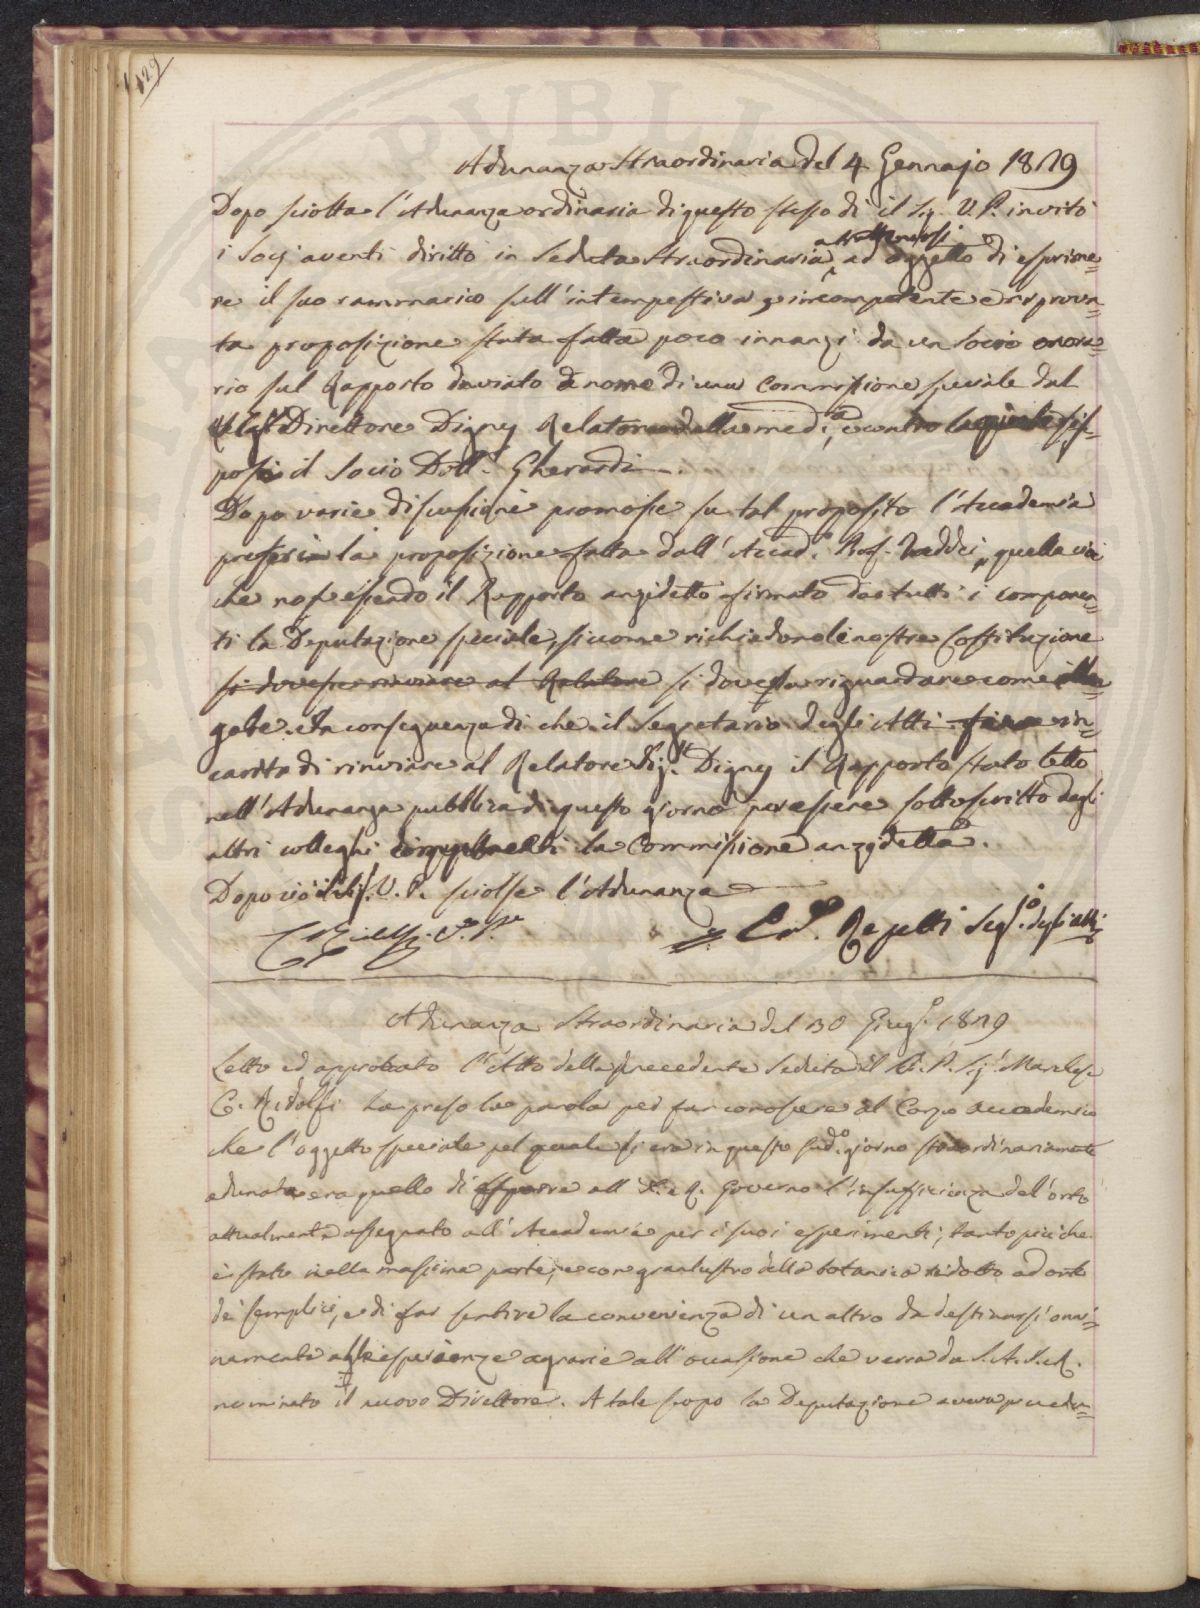 129
Adunanza Straordinaria del 4 Gennajo 1829
Dopo sciolta l'Adunanza ordinaria di questo stesso dì il Sig. V. P. invitò
i Socj aventi diritto in Seduta Straordinaria a trattenersi ad oggetto di esprime=
re il suo rammarico sull'intempestiva, incompetente e risprova=
ta proposizione stata fatta poco innanzi da un Socio onora=
rio sul Rapporto inviato a nome di una Commissione speciale dal
Sig. Direttore Digny Relatore della med.a, e contro la quale si op=
pose il Socio Dott. Gherardi.
Dopo varie discussioni promosse su tal proposito l'Accademia
preferì la proposizione fatta dall'Accad.o Prof. Taddei, quella cioè
che non essendo il Rapporto anzidetto firmato da tutti i componen=
ti la Deputazione speciale, siccome richiedono le nostre Costituzione
si dovesse rinviare al Relatore si dovesse riguardare come ille=
gale. In conseguenza di che il Segretario degli Atti in=
carità di rinviare al Relatore Sig. Digny il Rapporto stato letto
nell'Adunanza pubblica di questo giorno per essere sottoscritto dagli
altri colleghi componenti la Commissione anzidetta.
Dopo ciò il Sig. V. P. sciolse l'Adunanza
C. Ridolfi V. P.
E. Repetti Seg.o degli atti
Adunanza Straordinaria del 30 Giug.o 1829
Letto ed approvato l'Atto della precedente Seduta il V. P. Sig. Marchese
C. Ridolfi ha preso la parola per far conoscere al Corpo accademico
che l'oggetto speciale pel quale si era in questo sud.o giorno straordinariamente
adunata era quello di esporre all'I. e R. Governo l'insufficienza dell'orto
attualmente assegnato all'Accademia per i suoi esperimenti; tanto più che
è stato nella massima parte, e con gran lustro della botanica ridotto ad orto
dei semplici, e di far sentire la convenienza di un altro da destinarsi oni=
namente alle esperienze agrarie all'occasione che verrà da S. A. I. e R.
nominato il nuovo Direttore. A tale scopo la Deputazione aveva precedu=